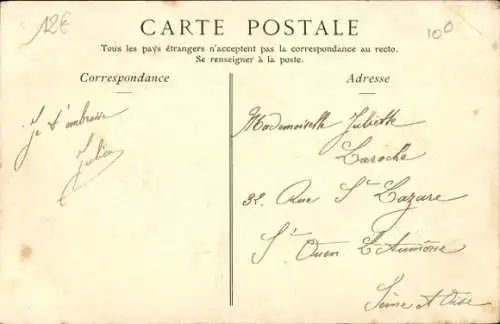 12€
100
CARTE POSTALE
Tous les pays étrangers n'acceptent pas la correspondance au recto.
Se renseigner à la poste.
Correspondance
Je t'embrasse
Julien
Adresse
Mademoiselle Juliette
Laroche
32, Rue St Lazare
St Ouen L'Aumône
Seine et Oise